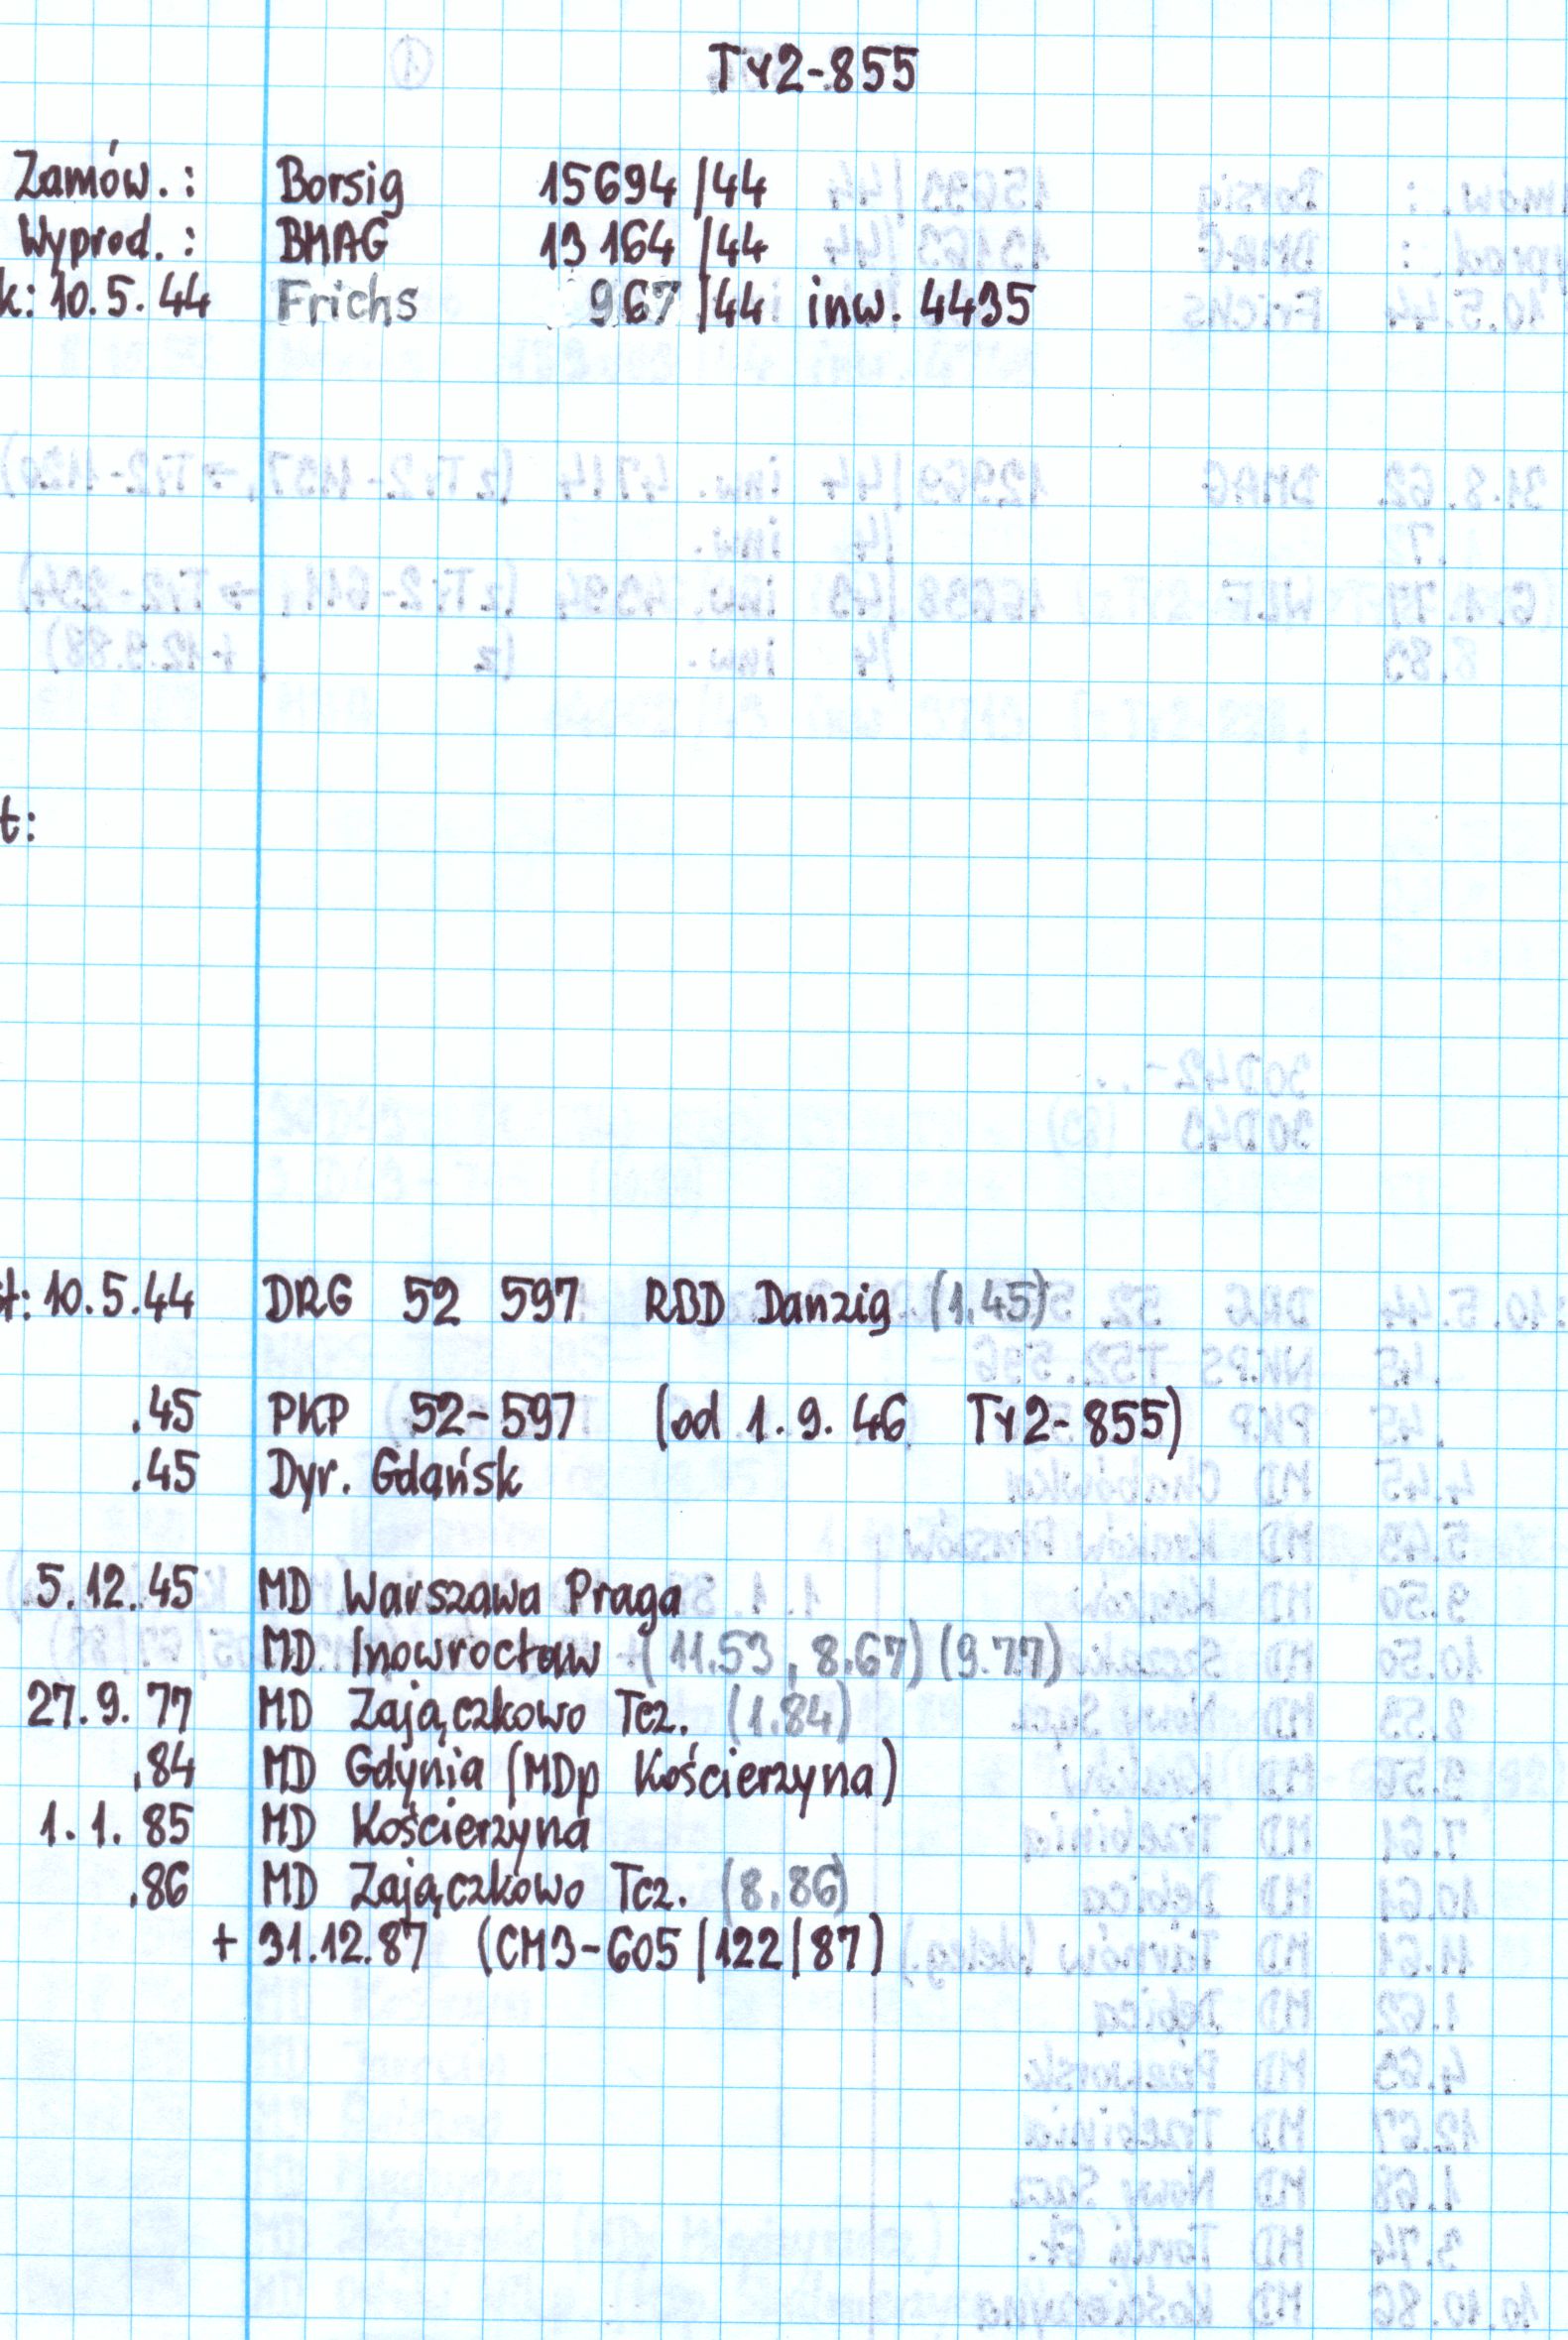 Ty2-855
Zamów.: Borsig 15694/44
Wyprod.: BMAG 13164/44
k: 10.5.44 Frichs 967/44 inw. 4435
t:
st: 10.5.44 DRG 52 597 RBD Danzig (1.45)
.45 PKP 52-597 (od 1.9.46 Ty2-855)
.45 Dyr. Gdańsk
5.12.45 MD Warszawa Praga
MD Inowrocław (11.53, 8.67) (9.77)
27.9.77 MD Zajączkowo Tcz. (1.84)
.84 MD Gdynia (MDp Kościerzyna)
1.1.85 MD Kościerzyna
.86 MD Zajączkowo Tcz. (8.86)
+ 31.12.87 (CM3-605/122/87)